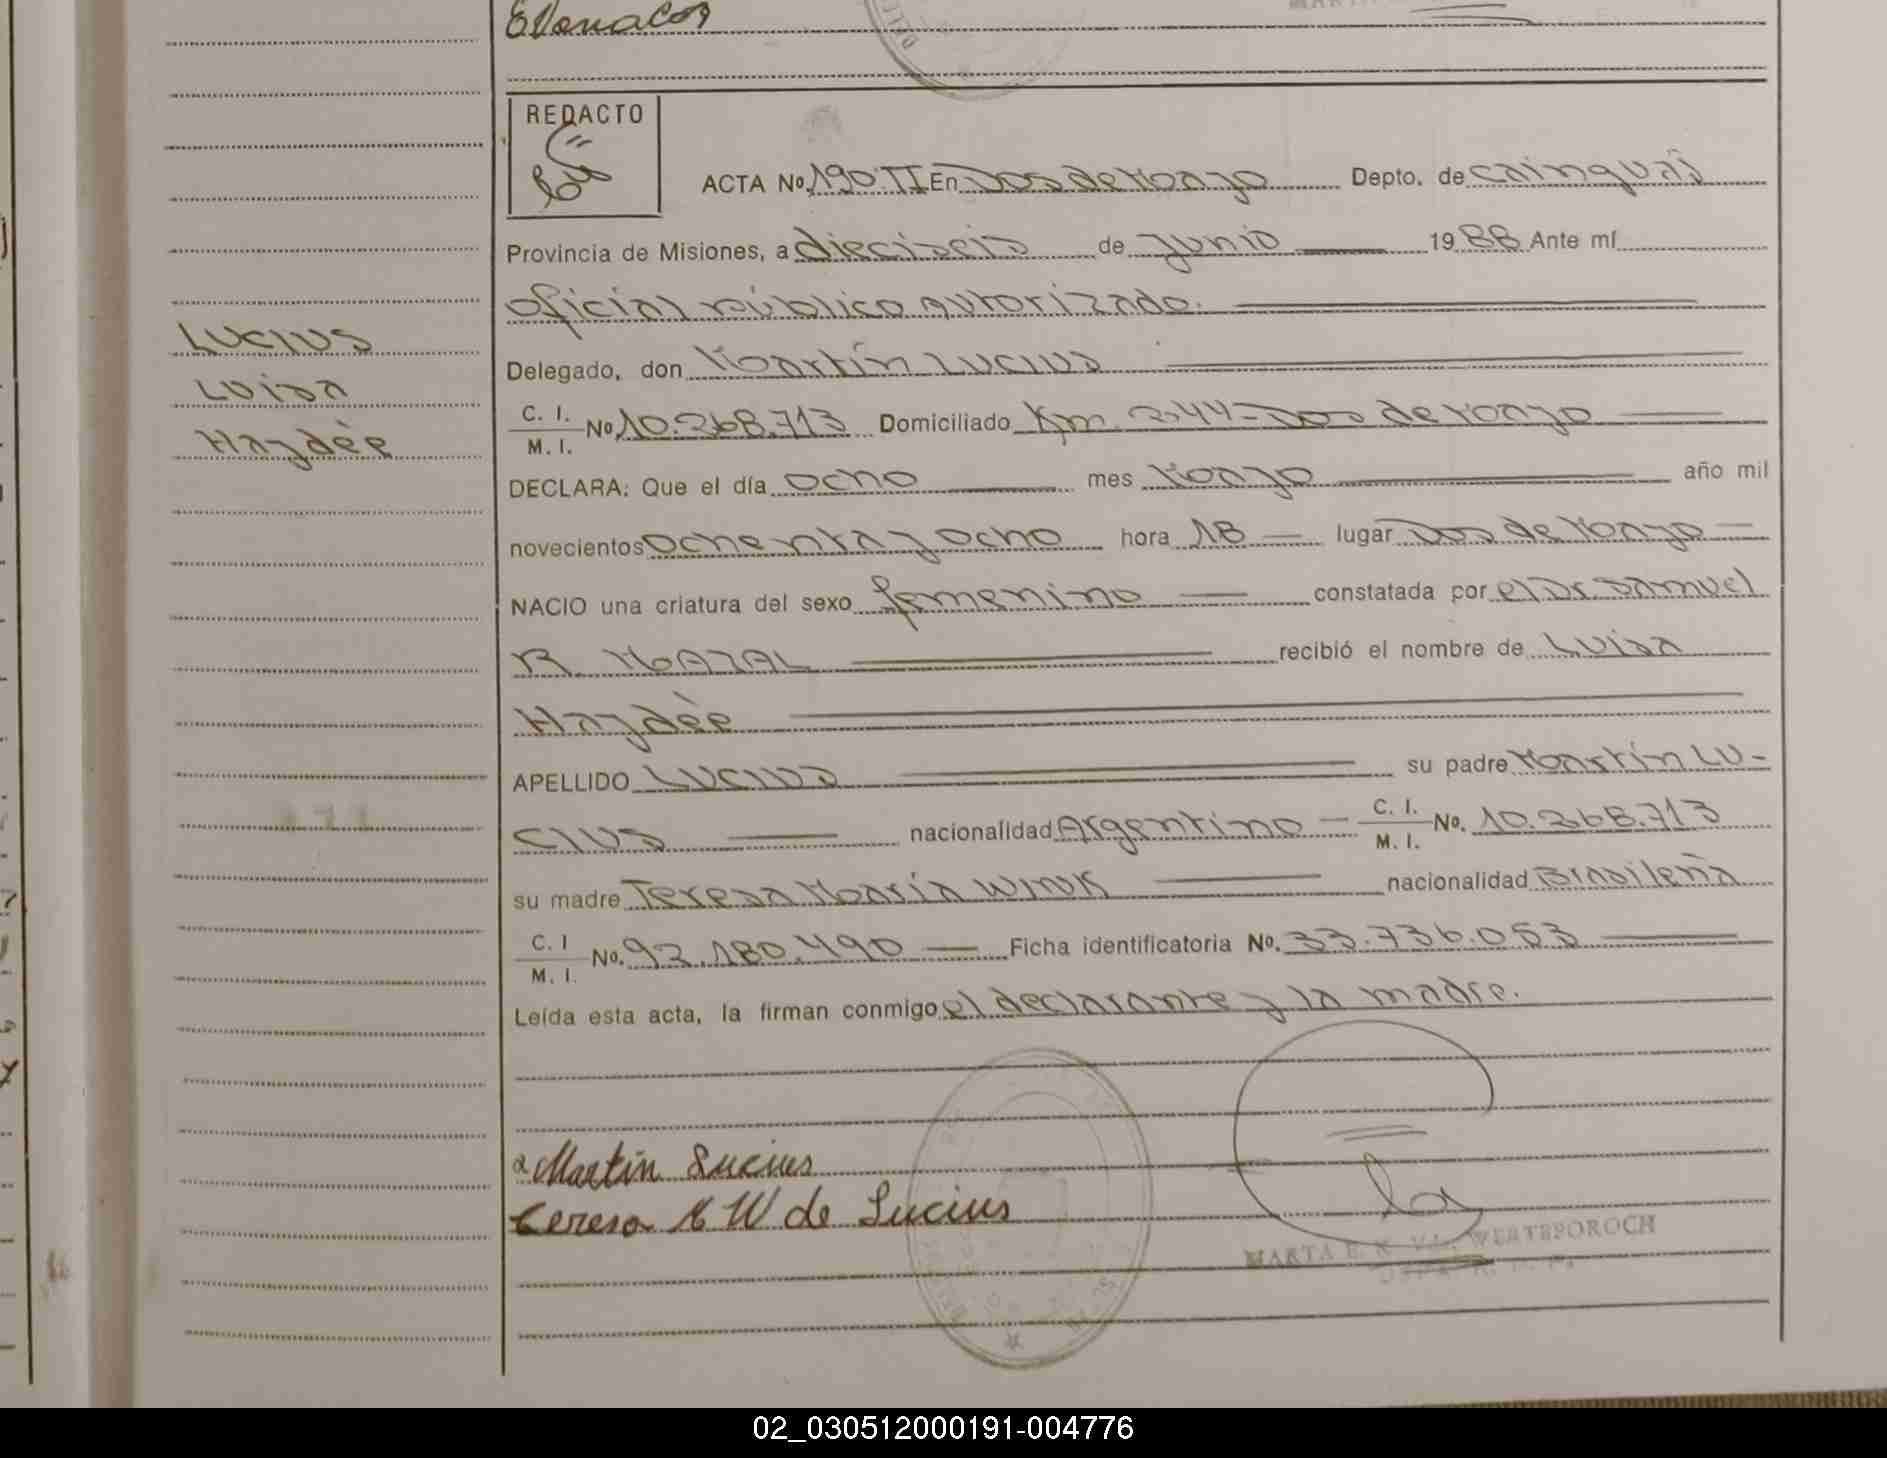 REDACTO
ACTA No. 190 TI En Dos de Mayo Depto. de Cainguás
Provincia de Misiones, a dieciseis de Junio 1988 Ante mí
oficial público autorizado.
LUCIUS
Delegado, don Martín LUCIUS
Luisa
C. I. M. I. No. 10.268.713 Domiciliado Km. 244-Dos de Mayo
Haydèe
DECLARA: Que el día ocho mes Mayo año mil
novecientos ochenta y ocho hora 18 lugar Dos de Mayo
NACIO una criatura del sexo femenino constatada por el Dr. Samuel
R. MAZAL recibió el nombre de Luisa
Haydèe
APELLIDO LUCIUS su padre Martín LU-
CIUS nacionalidad Argentino C. I. M. I. No. 10.268.713
su madre Teresa María WINK nacionalidad Brasileña
C. I M. I. No. 92.180.490 Ficha identificatoria No. 33.736.053
Leída esta acta, la firman conmigo el declarante y la madre.
Martin Lucius
Teresa M W de Lucius
MARTA E. K. WERTEPOROCH
02_030512000191-004776